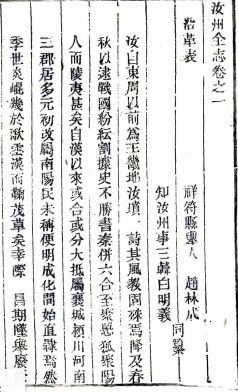 汝州全志卷之一
沿革表
祥符縣舉人 趙林成
知汝州事三韓白明義 同纂
汝自東周以前為王畿地汝墳一詩其風教固殊焉降及春
秋以逮戰國紛紜割據史不勝書秦併六合至梁懸狐聚陽
人而陵夷甚矣自漢以來或合或分大抵屬襄城潁川河南
三郡居多元初改屬南陽民未稱便明成化間始直隸焉然
季世炎崐幾於歌雲漢而鞠茂草矣幸際 昌期墜舉廢